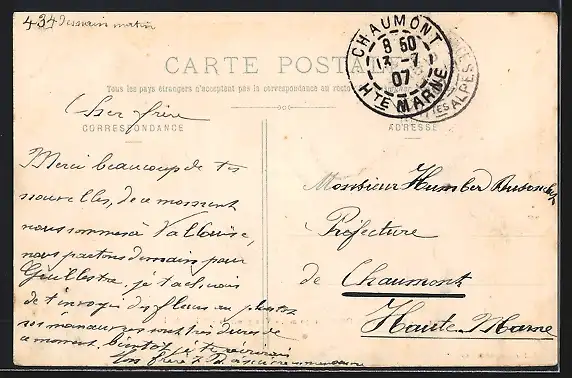 434 dessain matin
CARTE POSTALE
Tous les pays étrangers n'acceptent pas la correspondance au recto
CHAUMONT
8 50
13 -7
07
HTE MARNE
ALPES
CORRESPONDANCE
ADRESSE
Cher frère
Merci beaucoup de tes
nouvelles, de ce moment
nous sommes à Vallouise,
nous partons demain pour
Guillestre, je tacherais
de t'envoyer des fleurs ou photos
nos manœuvres sont très dures de
ce moment, bientôt je t'écrirais
Ton frère
Monsieur Humbert
Préfecture
de Chaumont
Haute-Marne